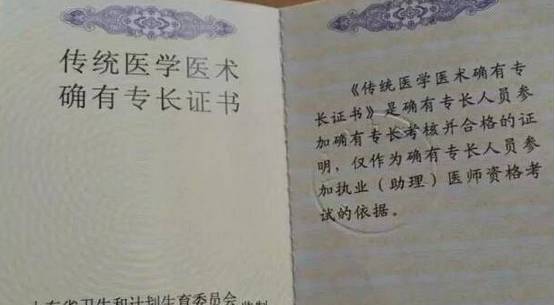 传统医学医术
确有专长证书
东省卫生和计划生育委员会 监制
《传统医学医术确有专
长证书》是确有专长人员参
加确有专长考核并合格的证
明，仅作为确有专长人员参
加执业（助理）医师资格考
试的依据。